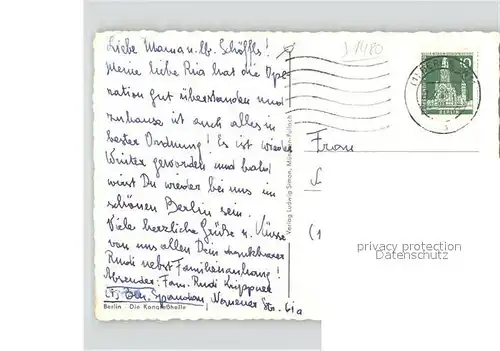 Liebe Mama u. lb. Schöffls!
Meine liebe Ria hat die Ope-
ration gut überstanden und
zuhause ist auch alles in
bester Ordnung! Es ist wieder
Winter geworden und bald
wirst Du wieder bei uns im
schönen Berlin sein.
Viele herzliche Grüße u. Küsse
von uns allen Dein dankbarer
Rudi nebst Familienanhang!
Absender: Fam. Rudi Knippner
(1) Bln. Spandau, Str. 61a
Berlin Die Kongreßhalle
Verlag Ludwig Simon, München-Pullach
J 1480
10
BERLIN
Frau
(1
privacy protection
watermark